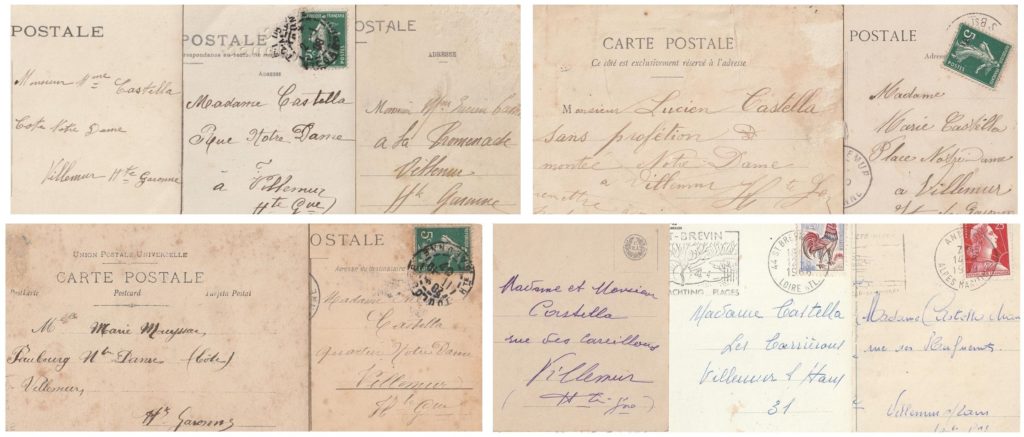 POSTALE
Monsieur Mme Castella
Costa Notre Dame
Villemur Hte Garonne
POSTALE
ADRESSE
Madame Castella
Notre Dame
à Villemur
Hte Gne
POSTALE
ADRESSE
à la Promenade
Villemur
Hte Garonne
CARTE POSTALE
Ce côté est exclusivement réservé à l'adresse
Monsieur Lucien Castella
sans profétion
montée Notre Dame
à Villemur Hte
POSTALE
5
Madame
Marie Castella
Place Notre Dame
à Villemur
Hte Garonne
UNION POSTALE UNIVERSELLE
CARTE POSTALE
Postkarte Postcard Tarjeta Postal
Mlle Marie
Faubourg Ntre Dame (Côte)
Villemur
Hte Garonne
POSTALE
5
Adresse du destinataire
Madame
Castella
quartier Notre Dame
Villemur
Hte Gne
Madame et Monsieur
Castella
rue des Careillous
Villemur
(Hte Gne)
T-BREVIN
YACHTING PLAGES
44 ST BRE
LOIRE
Madame Castella
Les
Villemur s/ Tarn
31
ALPES MAR
Madame Castella
rue des
Villemur s/Tarn